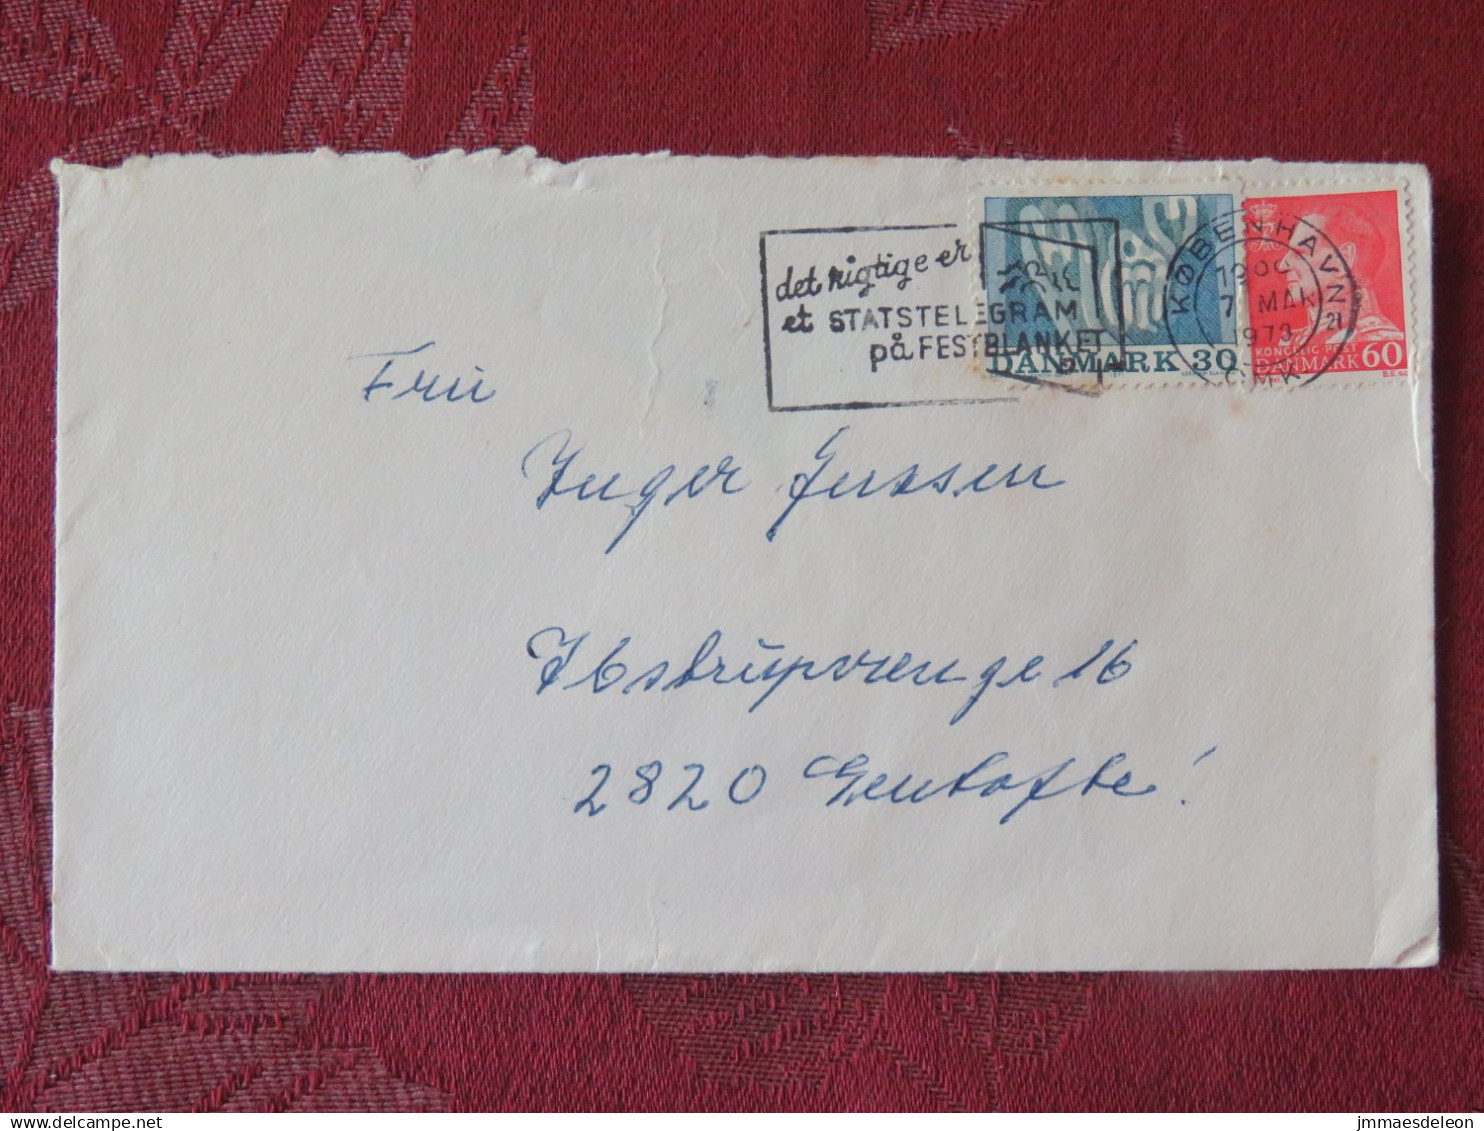 det rigtige er
et STATSTELEGRAM
på FESTBLANKET
DANMARK 30
KØBENHAVN
7 MAR
1973
OMK
21
KONGELIG POST
DANMARK 60
Fru
Inger Jenssen
Ibstrupvænge 16
2820 Gentofte!
jmmaesdeleon